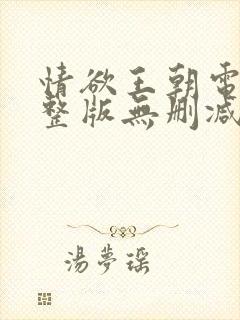 情欲王朝電
整版無刪減
湯夢瑶